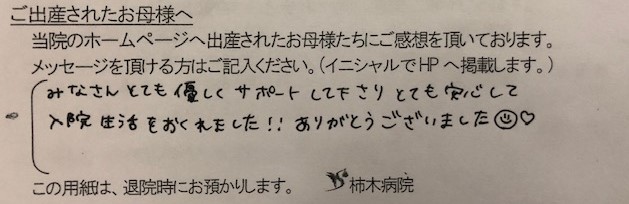 ご出産されたお母様へ
当院のホームページへ出産されたお母様たちにご感想を頂いております。
メッセージを頂ける方はご記入ください。(イニシャルでHPへ掲載します。)
みなさんとても優しくサポートして下さりとても安心して
入院生活をおくれました!!ありがとうございました☺♡
この用紙は、退院時にお預かりします。 柿木病院